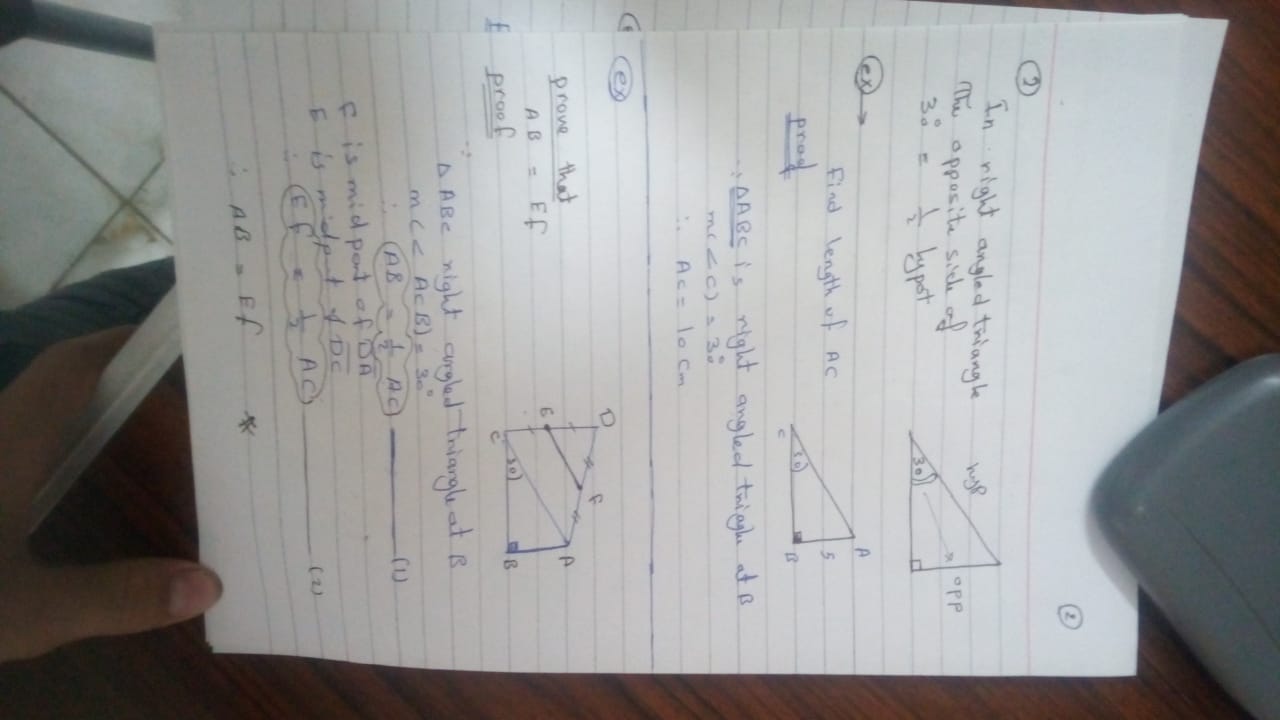 2
2
In right angled triangle
The opposite side of
30° = 1/2 hypot
hyp
opp
30
ex →
Find length of AC
proof
A
5
30
C
B
∵ △ABC is right angled triagle at B
m(<C) = 30°
∴ AC = 10 Cm
ex
prove that
AB = EF
proof
D
F
A
E
30
C
B
∵
△ ABC right angled triangle at B
m(< ACB) = 30°
∴ AB = 1/2 AC (1)
F is mid point of DA
E is midpoint of DC
∴ EF = 1/2 AC (2)
∴ AB = EF